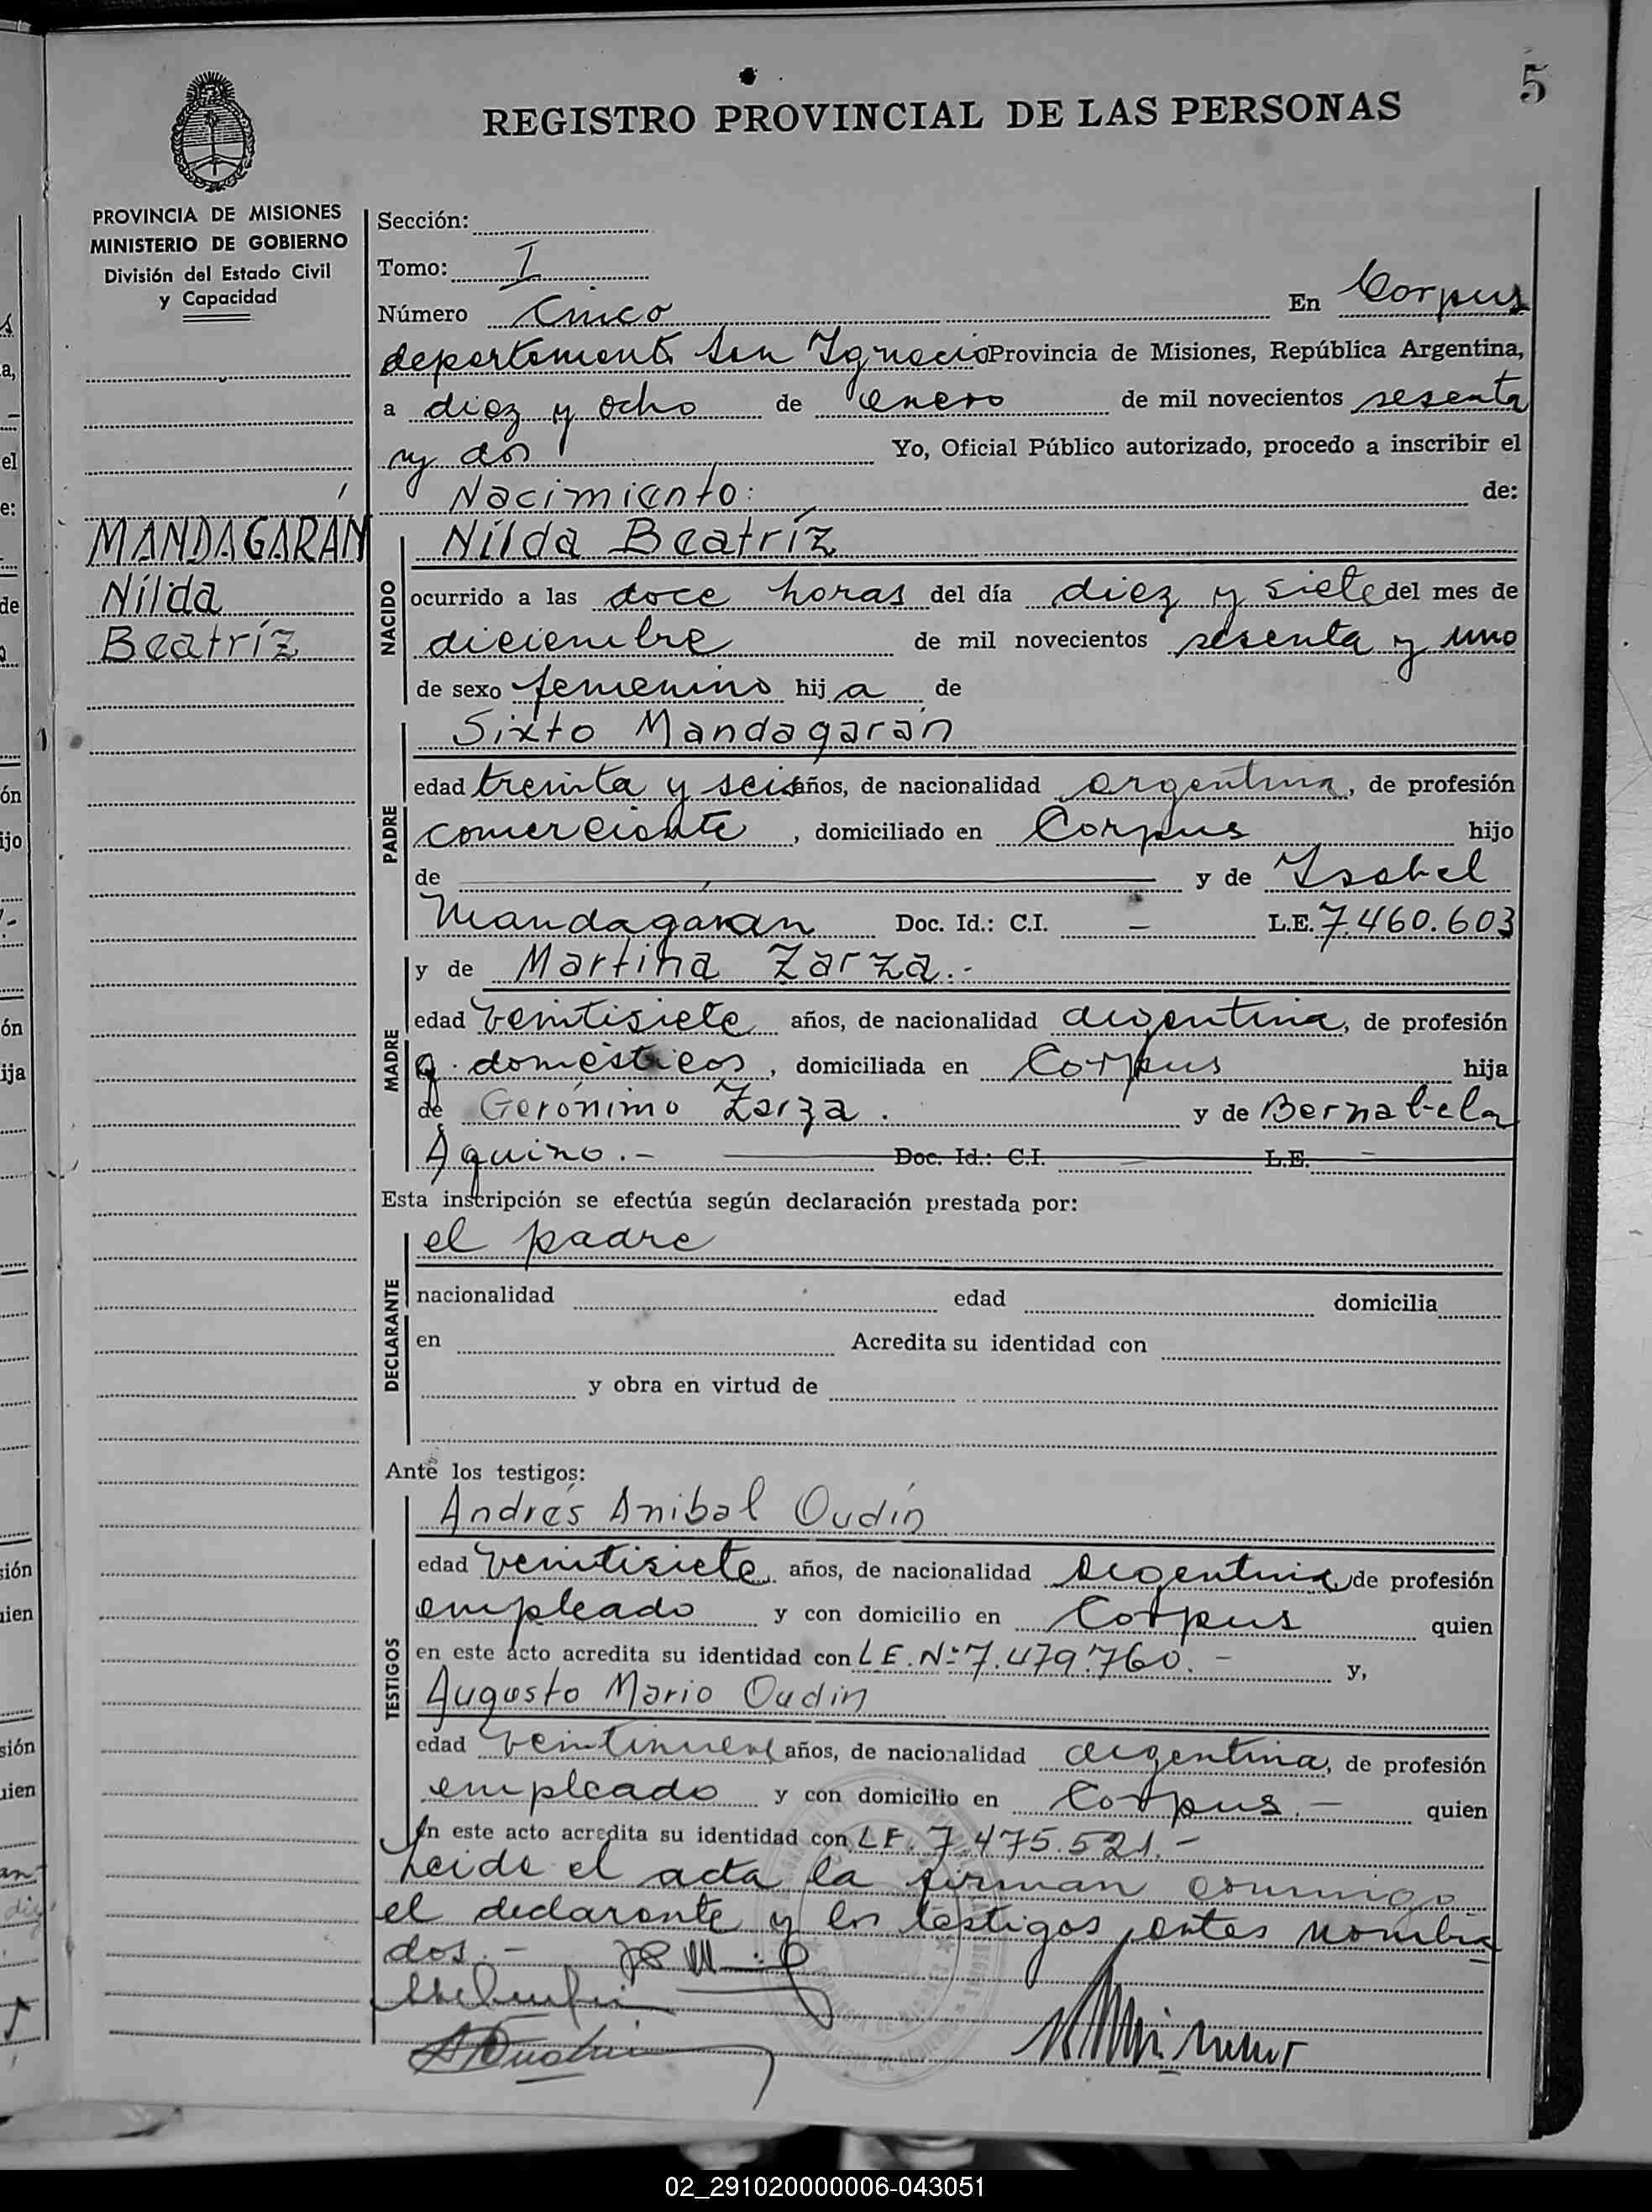 5
REGISTRO PROVINCIAL DE LAS PERSONAS
PROVINCIA DE MISIONES
MINISTERIO DE GOBIERNO
División del Estado Civil
y Capacidad
MANDAGARÁN
Nílda
Beatríz
Sección:
Tomo: I
Número Cinco En Corpus
departamento San Ignacio Provincia de Misiones, República Argentina,
a diez y ocho de enero de mil novecientos sesenta
y dos Yo, Oficial Público autorizado, procedo a inscribir el
Nacimiento: de:
NACIDO
Nílda Beatríz
ocurrido a las doce horas del día diez y siete del mes de
diciembre de mil novecientos sesenta y uno
de sexo femenino hija de
PADRE
Sixto Mandagarán
edad treinta y seis años, de nacionalidad argentina, de profesión
comerciante, domiciliado en Corpus hijo
de y de Isabel
Mandagaran Doc. Id.: C.I. - L.E. 7.460.603
MADRE
y de Martina Zarza.-
edad veintisiete años, de nacionalidad argentina, de profesión
q. domésticos, domiciliada en Corpus hija
de Gerónimo Zarza. y de Bernabela
Aquino.- Doc. Id.: C.I. L.E.
Esta inscripción se efectúa según declaración prestada por:
DECLARANTE
el padre
nacionalidad edad domicilia
en Acredita su identidad con
y obra en virtud de
Ante los testigos:
TESTIGOS
Andrés Anibal Oudín
edad veintisiete años, de nacionalidad argentina de profesión
empleado y con domicilio en Corpus quien
en este acto acredita su identidad con L E. Nº 7.479.760.- y,
Augusto Mario Oudin
edad veintinueve años, de nacionalidad argentina, de profesión
empleado y con domicilio en Corpus.- quien
en este acto acredita su identidad con L E. 7.475.521.-
Leida el acta la firman conmigo
el declarante y los testigos antes nombra
dos.-
02_291020000006-043051